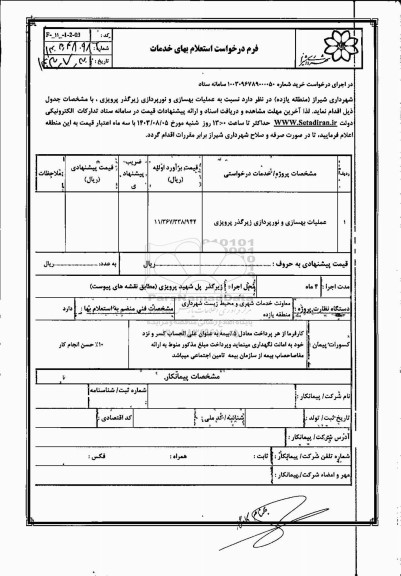 کد: F-_11_-1-2-03
شماره:
تاریخ:
فرم درخواست استعلام بهای خدمات
در اجرای درخواست خرید شماره ۱۰۰۳۰۹۶۷۸۹۰۰۰۰۵۰ سامانه ستاد
شهرداری شیراز (منطقه یازده) در نظر دارد نسبت به عملیات بهسازی و نورپردازی زیرگذر پرویزی ، با مشخصات جدول
ذیل اقدام نماید. لذا آخرین مهلت مشاهده و دریافت اسناد و ارائه پیشنهادات قیمت در سامانه ستاد تدارکات الکترونیکی
دولت WWW.Setadiran.ir حداکثر تا ساعت ۱۳:۰۰ روز شنبه مورخ ۱۴۰۳/۰۸/۰۵ با سه ماه اعتبار قیمت به این منطقه
اعلام فرمایید، تا در صورت صرفه و صلاح شهرداری شیراز برابر مقررات اقدام گردد.
مشخصات پروژه/خدمات درخواستی
قیمت برآورد اولیه (ریال)
ضریب پیشنهادی
قیمت پیشنهادی (ریال)
ملاحظات
۱
عملیات بهسازی و نورپردازی زیرگذر پرویزی
۱۱/۳۶۷/۳۳۸/۹۴۴
قیمت پیشنهادی به حروف : ........ ریال
به عدد: ........ ریال
مدت اجرا : ۴ ماه
محل اجرا : زیرگذر پل شهید پرویزی (مطابق نقشه های پیوست)
دستگاه نظارت پروژه :
معاونت خدمات شهری و محیط زیست شهرداری منطقه یازده
مشخصات فنی منضم به استعلام بها : دارد
کسورات پیمان :
کارفرما از هر پرداخت معادل ۵٪ بیمه به عنوان علی الحساب کسر و نزد
خود به امانت نگهداری مینماید وپرداخت مبلغ مذکور منوط به ارائه
مفاصاحساب بیمه از سازمان بیمه تامین اجتماعی میباشد
۱۰٪ حسن انجام کار
مشخصات پیمانکار:
نام شرکت/ پیمانکار :
شماره ثبت/ شناسنامه :
تاریخ ثبت/ تولد :
شناسه/کد ملی :
کد اقتصادی :
آدرس شرکت/ پیمانکار :
شماره تلفن شرکت/ پیمانکار :
ثابت :
همراه :
فکس :
مهر و امضاء شرکت/پیمانکار :